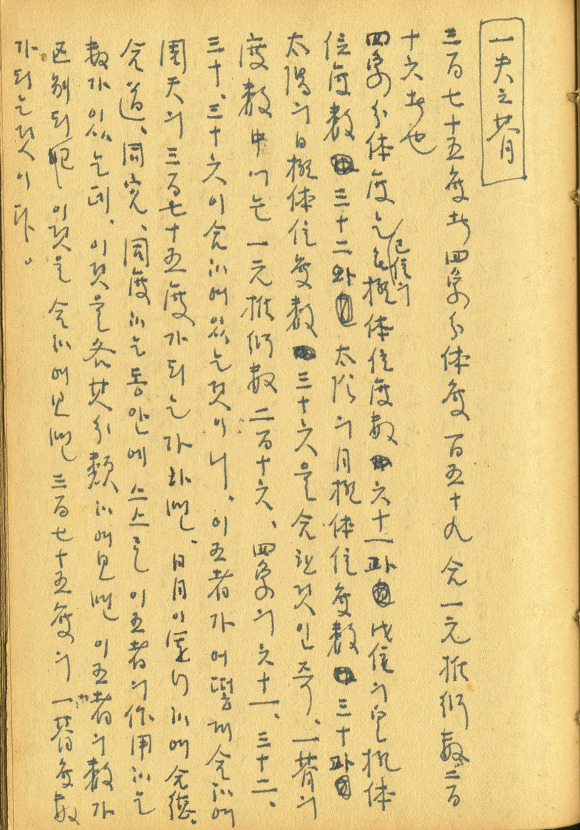 一夫之朞
三百七十五度者 四象分体度 百五十九 合一元推衍數 二百
十六者也
四象分体度는 己位의  極体位度數 六十一과 戊位의 皇極体
位度數 三十二와 太陰의 月極体位度數 三十과
太陽의 日極体位度數 三十六을 合한것인즉, 一朞의
度數中에는 一元推衍數 二百十六, 四象의 六十一, 三十二,
三十, 三十六이 合하여 있는것이니, 이五者가 어떻게 合하여
周天의 三百七十五度가 되는가하면, 日月이 運行하여 合德,
合道, 同宮, 同度하는 동안에 스스로 이五者의 作用하는
數가 있는데, 이것을 各其分類하여보면 이五者의 數가
区別되며 이것을 合하여보면 三百七十五度의 一朞度數
가되는것이다。